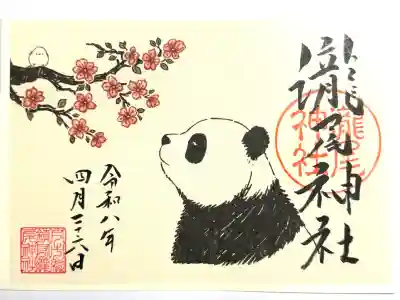 瀧尾神社
瀧尾
神社
令和八年
四月二十六日